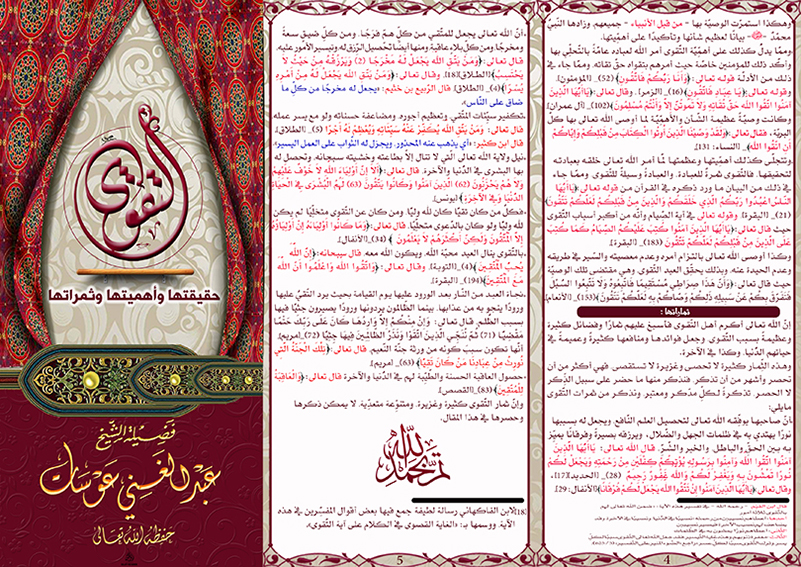 وهكذا استمرّت الوصيّة بها - من قبل الأنبياء - جميعهم، وزادها النّبيُّ
محمّدٌ ﷺ - بيانًا لعظيم شأنها وتأكيدًا على أهمّيّتها.
وممّا يدلّ كذلك على أهمّيّة التّقوى أمر الله لعباده عامّة بالتّحلّي بها
وأكّد ذلك للمؤمنين خاصّة حيث أمرهم بتقواه حق تقاته، وممّا جاء في
ذلك من الأدلّة قوله تعالى: ﴿وَأَنَا رَبُّكُمْ فَاتَّقُونِ﴾ (52)_ [المؤمنون].
وقوله تعالى: ﴿يَا عِبَادِ فَاتَّقُونِ﴾(16)_ [الزمر]. وقال تعالى: ﴿يَاأَيُّهَا الَّذِينَ
آمَنُوا اتَّقُوا اللَّهَ حَقَّ تُقَاتِهِ وَلَا تَمُوتُنَّ إِلَّا وَأَنْتُمْ مُسْلِمُونَ﴾(102)_ [آل عمران].
وكانت وصيّةً عظيمة الشّأن والأهمّيّة لما أوصى الله تعالى بها كلّ
البريّة، فقال تعالى: ﴿وَلَقَدْ وَصَّيْنَا الَّذِينَ أُوتُوا الْكِتَابَ مِنْ قَبْلِكُمْ وَإِيَّاكُمْ
أَنِ اتَّقُوا اللَّهَ﴾_ النساء: 131].
وتتجلّى كذلك أهمّيتها وعظمتها لمّا أمر الله تعالى خلقه بعبادته
لتحقيقها. فالتّقوى ثمرةٌ للعبادة. والعبادةُ وسيلة للتّقوى وممّا جاء
في ذلك من البيان ما ورد ذكره في القرآن من قوله تعالى ﴿يَاأَيُّهَا
النَّاسُ اعْبُدُوا رَبَّكُمُ الَّذِي خَلَقَكُمْ وَالَّذِينَ مِنْ قَبْلِكُمْ لَعَلَّكُمْ تَتَّقُونَ﴾
(21)_ [البقرة] وقوله تعالى في آية الصّيام وأنّه من أكبر أسباب التّقوى
حيث قال تعالى: ﴿يَاأَيُّهَا الَّذِينَ آمَنُوا كُتِبَ عَلَيْكُمُ الصِّيَامُ كَمَا كُتِبَ
عَلَى الَّذِينَ مِنْ قَبْلِكُمْ لَعَلَّكُمْ تَتَّقُونَ﴾ (183)_ [البقرة].
وكذا أوصى الله تعالى بالتزام أمره وعدم معصيته والسّير في طريقه
وعدم الحيدة عنه. وبذلك يحقّق العبد التّقوى وهي مقتضى تلك الوصيّة
حيث قال تعالى: ﴿وَأَنَّ هَذَا صِرَاطِي مُسْتَقِيمًا فَاتَّبِعُوهُ وَلَا تَتَّبِعُوا السُّبُلَ
فَتَفَرَّقَ بِكُمْ عَنْ سَبِيلِهِ ذَلِكُمْ وَصَّاكُمْ بِهِ لَعَلَّكُمْ تَتَّقُونَ﴾ (153)_ [الأنعام].
ثمراتها :
إنّ الله تعالى أكرم أهل التّقوى فأسبغ عليهم ثمارًا وفضائل كثيرة
وعظيمة بسبب التّقوى. وجعل فوائدها ومنافعها كثيرةً وعميمة في
حياتهم الدّنيا، وكذا في الآخرة.
وهذه الثّمار كثيرة لا تحصى وغزيرة لا تستقصى. فهي أكثر من أن
تحصر وأشهر من أن تذكر. فنذكر منها ما حضر على سبيل الذّكر
لا الحصر. تذكرةً لكلّ مدّكر ومعتبر ونذكر من ثمرات التّقوى
مايلي:
-أنّ صاحبها يوفّقه الله تعالى لتحصيل العلم النّافع. ويجعل له بسببها
نورًا يهتدي به في ظلمات الجهل والضّلال. ويرزقه بصيرةً وفرقانًا يميّز
به بين الحقّ والباطل. والخير والشّرّ. قال الله تعالى: ﴿يَاأَيُّهَا الَّذِينَ
آمَنُوا اتَّقُوا اللَّهَ وَآمِنُوا بِرَسُولِهِ يُؤْتِكُمْ كِفْلَيْنِ مِنْ رَحْمَتِهِ وَيَجْعَلْ لَكُمْ
نُورًا تَمْشُونَ بِهِ وَيَغْفِرْ لَكُمْ وَاللَّهُ غَفُورٌ رَحِيمٌ﴾ (28)_ [الحديد][17]،
وقال تعالى ﴿يَاأَيُّهَا الَّذِينَ آمَنُوا إِنْ تَتَّقُوا اللَّهَ يَجْعَلْ لَكُمْ فُرْقَانًا﴾[الأنفال: 29].
4
-أنّ الله تعالى يجعل للمتّقي من كلّ همّ فرجًا. ومن كلّ ضيقٍ سعةً
ومخرجًا ومن كلّ بلاءٍ عافية ومنها أيضًا تحصيل الرّزق له وتيسير الأمور عليه.
قال تعالى: ﴿وَمَنْ يَتَّقِ اللَّهَ يَجْعَلْ لَهُ مَخْرَجًا (2) وَيَرْزُقْهُ مِنْ حَيْثُ لَا
يَحْتَسِبُ﴾[الطلاق][18]. وقال تعالى: ﴿وَمَنْ يَتَّقِ اللَّهَ يَجْعَلْ لَهُ مِنْ أَمْرِهِ
يُسْرًا﴾(4)_ [الطلاق]. قال الرّبيع بن خثيم: «يجعل له مخرجًا من كلّ ما
ضاق على النّاس».
-تكفير سيّئات المتّقي وتعظيم أجوره. ومضاعفة حسناته ولو مع يسر عمله
قال تعالى: ﴿وَمَنْ يَتَّقِ اللَّهَ يُكَفِّرْ عَنْهُ سَيِّئَاتِهِ وَيُعْظِمْ لَهُ أَجْرًا﴾ (5)_ [الطلاق].
قال ابن كثير: «أي يذهب عنه المحذور. ويجزل له الثّواب على العمل اليسير».
-نيل ولاية الله تعالى الّتي لا تنال إلّا بطاعته وخشيته سبحانه. وتحصل له
بها البشرى في الدّنيا والآخرة. قال تعالى: ﴿أَلَا إِنَّ أَوْلِيَاءَ اللَّهِ لَا خَوْفٌ عَلَيْهِمْ
وَلَا هُمْ يَحْزَنُونَ (62) الَّذِينَ آمَنُوا وَكَانُوا يَتَّقُونَ (63) لَهُمُ الْبُشْرَى فِي الْحَيَاةِ
الدُّنْيَا وَفِي الْآخِرَةِ﴾ [يونس].
-فكل من كان تقيًّا كان لله وليًّا ومن كان عن التّقوى متخلّيًا لم يكن
لله وليًّا ولو كان بالدّعوى متحلّيا. قال تعالى: ﴿وَمَا كَانُوا أَوْلِيَاءَهُ إِنْ أَوْلِيَاؤُهُ
إِلَّا الْمُتَّقُونَ وَلَكِنَّ أَكْثَرَهُمْ لَا يَعْلَمُونَ﴾ (34)_ [الأنفال].
-بالتّقوى ينال العبد محبّة الله. ويكون الله معه. قال سبحانه: ﴿إِنَّ اللَّهَ
يُحِبُّ الْمُتَّقِينَ﴾(4)_ [التوبة]. وقال تعالى: ﴿وَاتَّقُوا اللَّهَ وَاعْلَمُوا أَنَّ اللَّهَ
مَعَ الْمُتَّقِينَ﴾(194)_ [البقرة].
-نجاة العبد من النّار بعد الورود عليها يوم القيامة بحيث يرد التّقيّ عليها
ورودًا ينجو به من عذابها. بينما الظّالمون يردونها ورودًا يصيرون جثيًّا فيها
بسبب الظّلم. قال تعالى: ﴿وَإِنْ مِنْكُمْ إِلَّا وَارِدُهَا كَانَ عَلَى رَبِّكَ حَتْمًا
مَقْضِيًّا (71) ثُمَّ نُنَجِّي الَّذِينَ اتَّقَوْا وَنَذَرُ الظَّالِمِينَ فِيهَا جِثِيًّا﴾ (72)_[مريم].
-أنّها تكون سبب كونه من ورثة جنّة النّعيم. قال تعالى: ﴿تِلْكَ الْجَنَّةُ الَّتِي
نُورِثُ مِنْ عِبَادِنَا مَنْ كَانَ تَقِيًّا﴾(63)_ [مريم].
-حصول العاقبة الحسنة والطّيّبة لهم في الدّنيا والآخرة قال تعالى: ﴿وَالْعَاقِبَةُ
لِلْمُتَّقِينَ﴾(83)_ [القصص].
وإنّ ثمار التّقوى كثيرة وغزيرة. ومتنوّعة متعدّية، لا يمكن ذكرها
وحصرها في هذا المقال.
تم بحمد الله
[18]لابن الفاكهاني رسالة لطيفة جمع فيها بعض أقوال المفسّرين في هذه
الآية. ووسمها بـ: «الغاية القصوى في الكلام على آية التّقوى».
5
التقوى
حقيقتها وأهميتها وثمراتها
فضيلة الشيخ
عبد الغني عوسات
حفظه الله تعالى